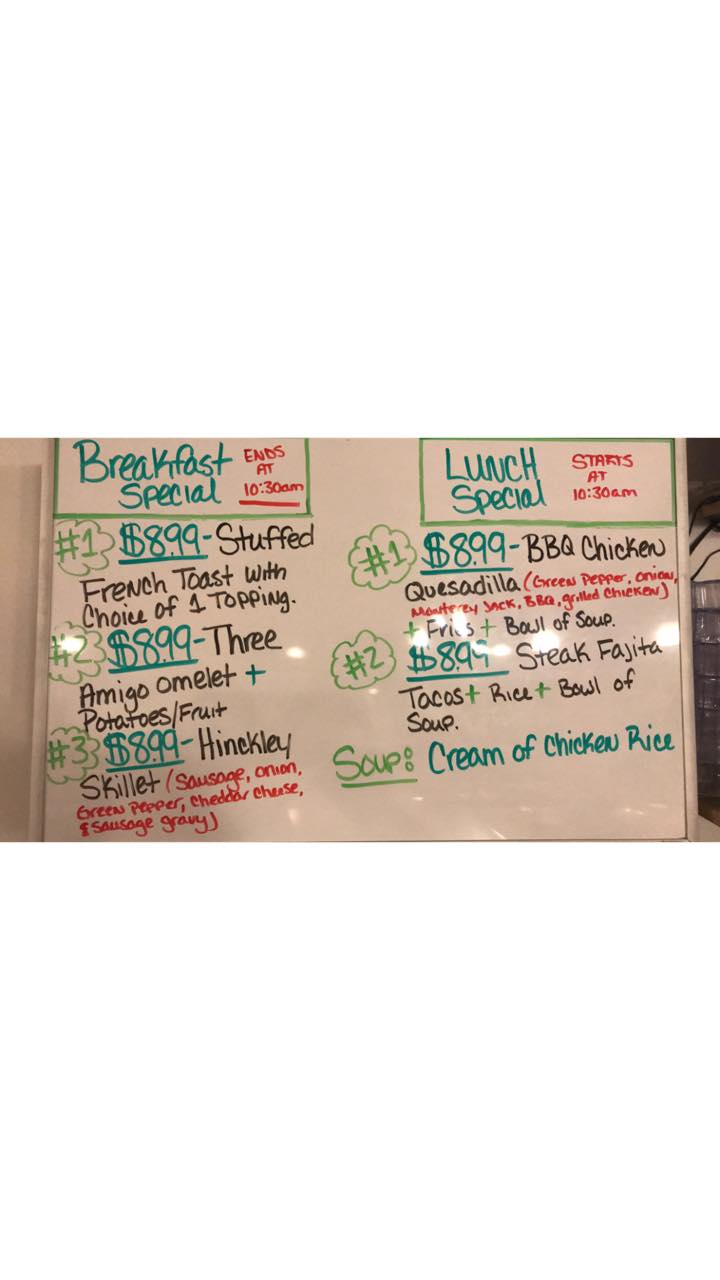 Breakfast Special
ENDS
AT
10:30am
#1 $8.99 - Stuffed
French Toast with
Choice of 1 Topping.
#2 $8.99 - Three
Amigo Omelet +
Potatoes/Fruit
#3 $8.99 - Hinckley
Skillet (Sausage, onion,
Green Pepper, Cheddar Cheese,
& Sausage gravy)
LUNCH
Special
STARTS
AT
10:30am
#1 $8.99 - BBQ Chicken
Quesadilla (Green Pepper, Onion,
Monterey Jack, BBQ, grilled Chicken)
+ Fries + Bowl of Soup.
#2 $8.99 Steak Fajita
Tacos + Rice + Bowl of
Soup.
Soup: Cream of Chicken Rice